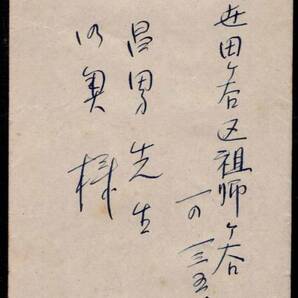 世田ヶ谷区祖師ヶ谷
一の一三五
昌男先生
奥様